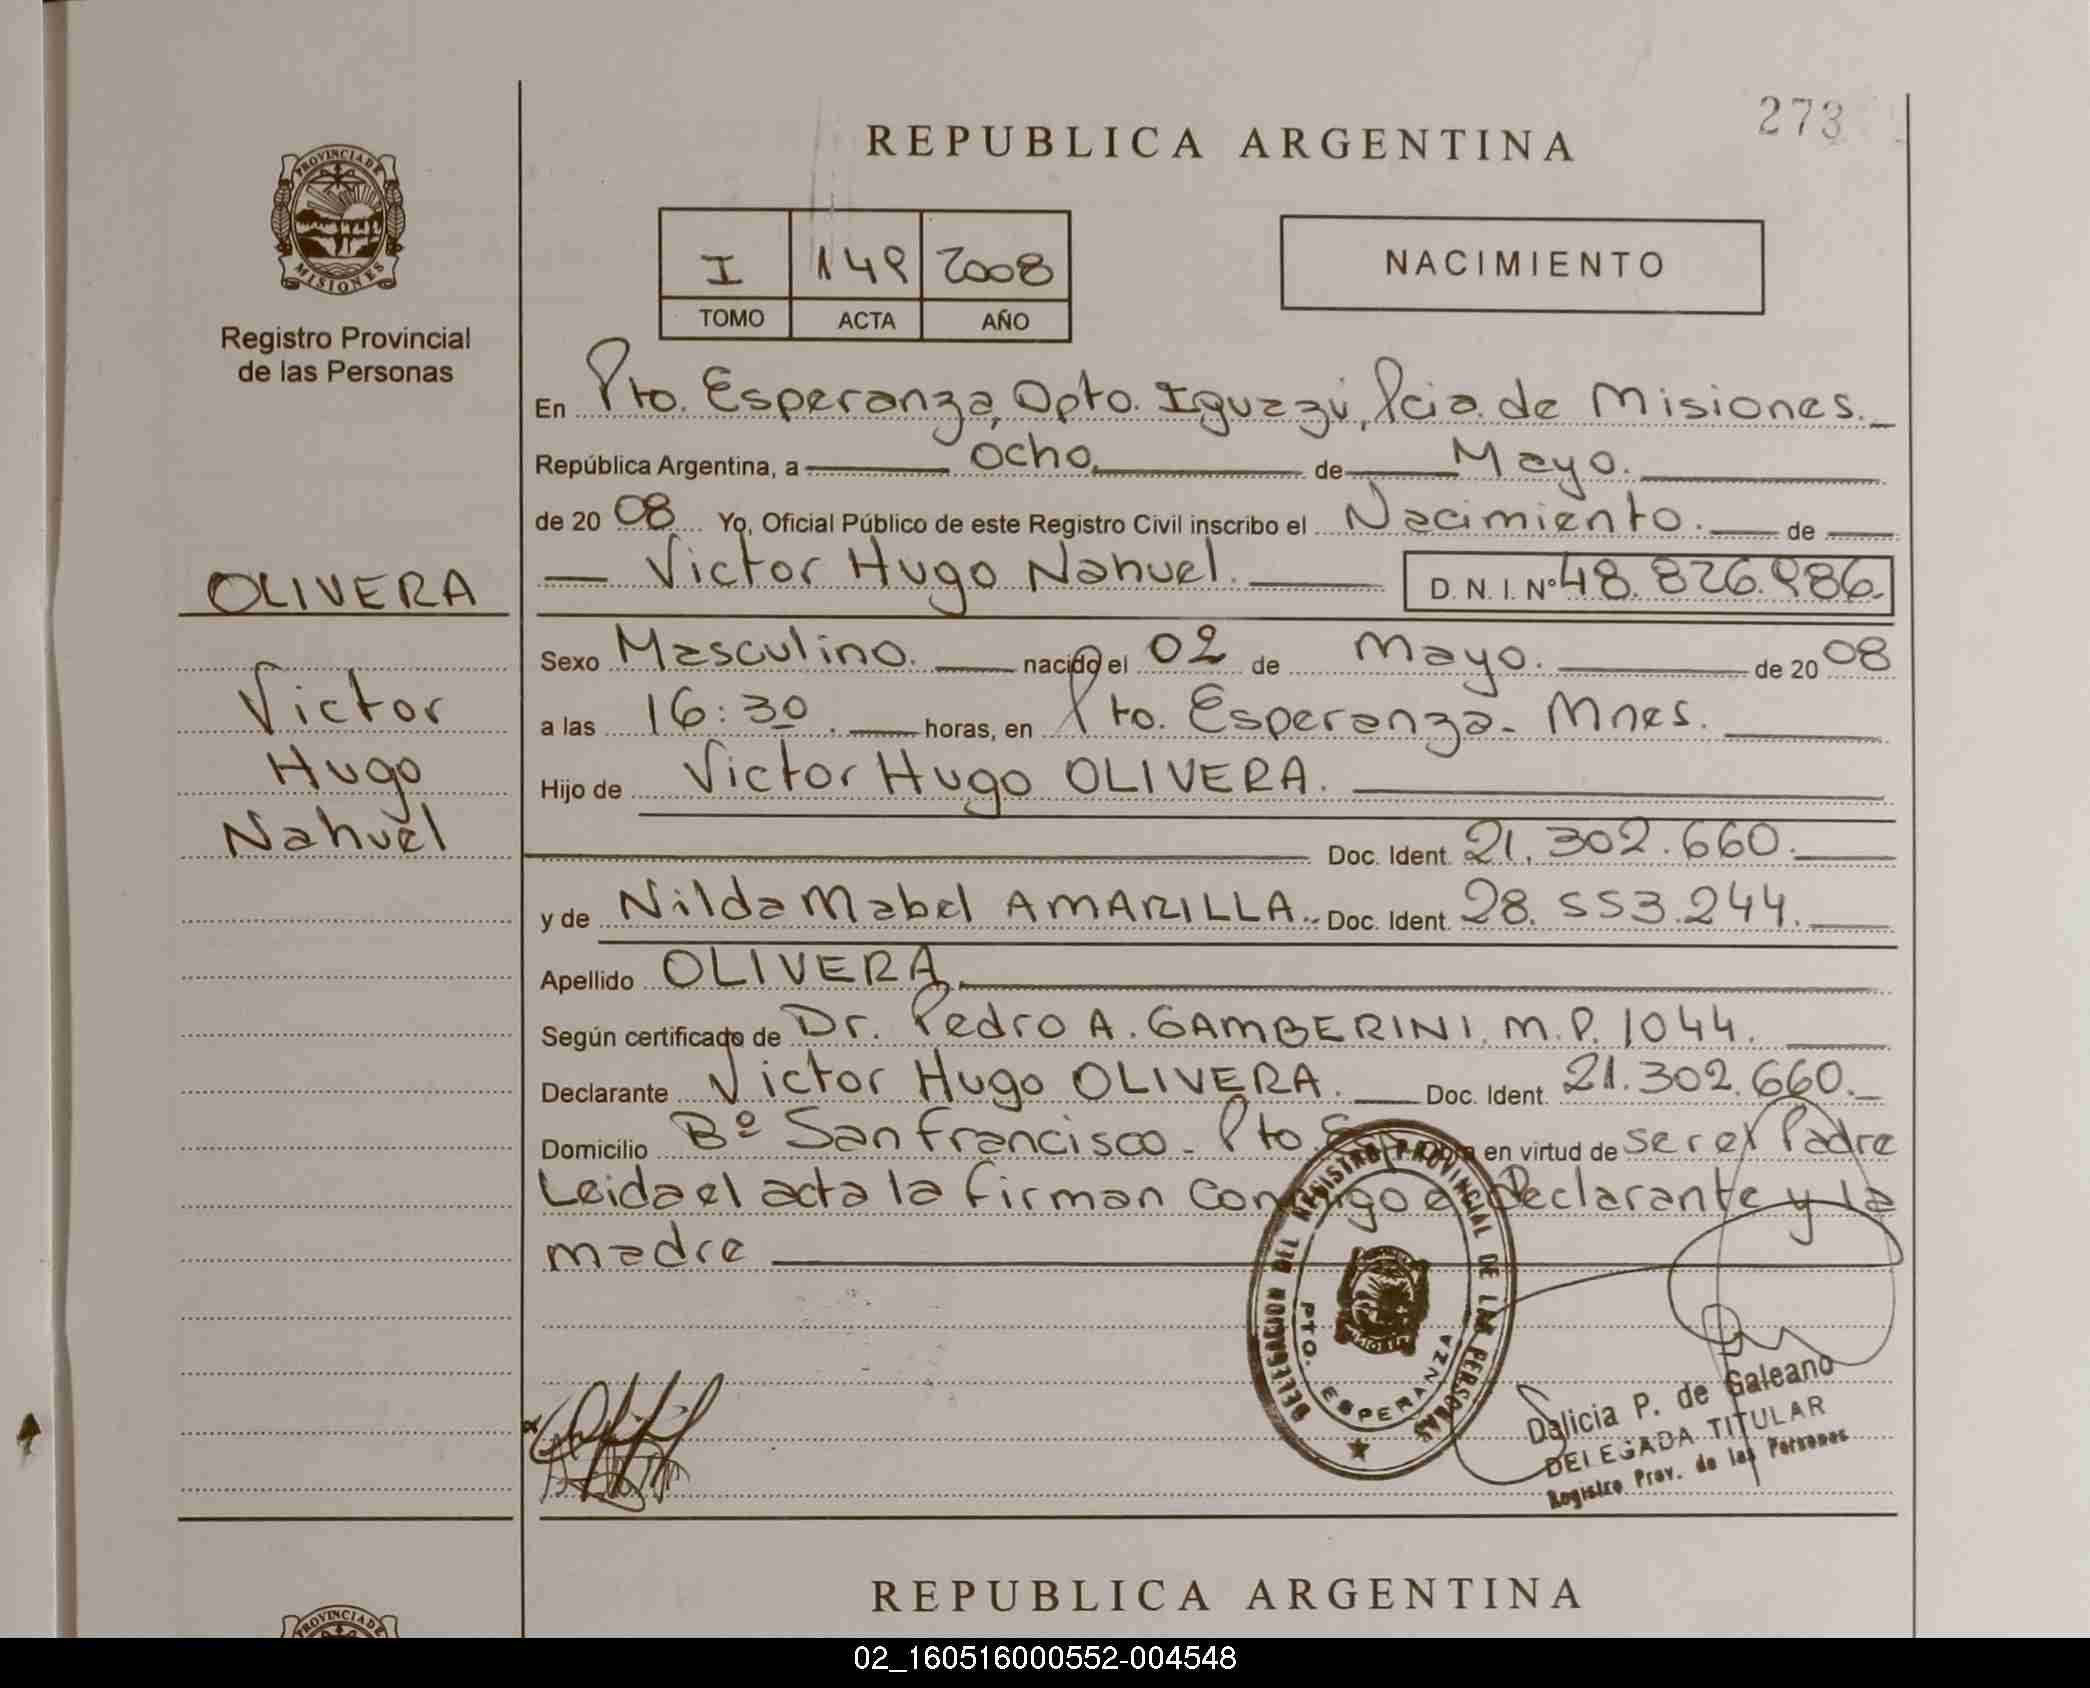 273
REPUBLICA ARGENTINA
PROVINCIA DE MISIONES
Registro Provincial
de las Personas
I 149 2008
TOMO ACTA AÑO
NACIMIENTO
En Pto. Esperanza, Dpto. Iguazú, Pcia. de Misiones.
República Argentina, a ocho de Mayo.
de 2008 Yo, Oficial Público de este Registro Civil inscribo el Nacimiento. de
Victor Hugo Nahuel. D. N. I. Nº 48.826.986.
OLIVERA
Victor
Hugo
Nahuel
Sexo Masculino. nacido el 02 de Mayo. de 2008
a las 16:30. horas, en Pto. Esperanza - Mnes.
Hijo de Victor Hugo OLIVERA.
Doc. Ident. 21.302.660.
y de Nilda Mabel AMARILLA.. Doc. Ident. 28.553.244.
Apellido OLIVERA
Según certificado de Dr. Pedro A. GAMBERINI. M.P. 1044.
Declarante Victor Hugo OLIVERA. Doc. Ident. 21.302.660.
Domicilio Bº San Francisco - Pto. en virtud de ser el Padre
Leida el acta la firman conmigo el Declarante y la
madre
DELEGACION DEL REGISTRO PROVINCIAL DE LAS PERSONAS
PTO. ESPERANZA
Dalicia P. de Galeano
DELEGADA TITULAR
Registro Prov. de las Personas
REPUBLICA ARGENTINA
PROVINCIA DE
02_160516000552-004548